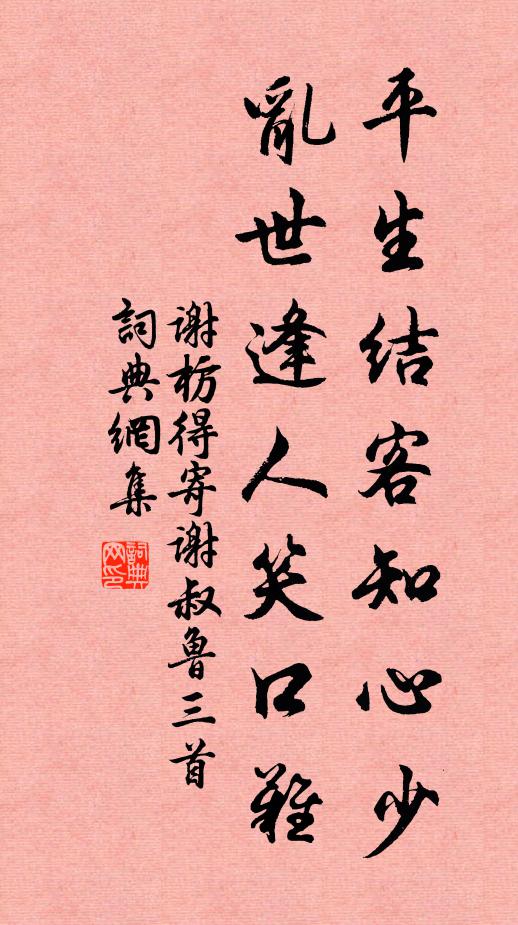 平生結客知心少
亂世逢人笑口難
谢枋得寄谢叔魯三首
詞典網集
詞典網印